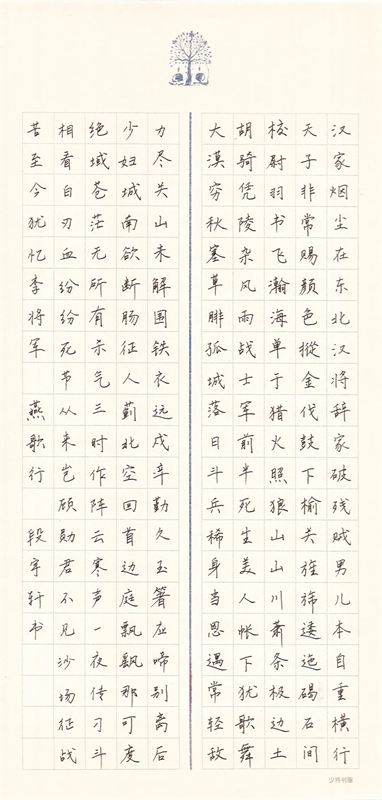 汉家烟尘在东北汉将辞家破残贼男儿本自重横行
天子非常赐颜色摐金伐鼓下榆关旌旆逶迤碣石间
校尉羽书飞瀚海单于猎火照狼山山川萧条极边土
胡骑凭陵杂风雨战士军前半死生美人帐下犹歌舞
大漠穷秋塞草腓孤城落日斗兵稀身当恩遇常轻敌
力尽关山未解围铁衣远戍辛勤久玉箸应啼别离后
少妇城南欲断肠征人蓟北空回首边庭飘飖那可度
绝域苍茫无所有杀气三时作阵云寒声一夜传刁斗
相看白刃血纷纷死节从来岂顾勋君不见沙场征战
苦至今犹忆李将军 燕歌行 段宇轩书